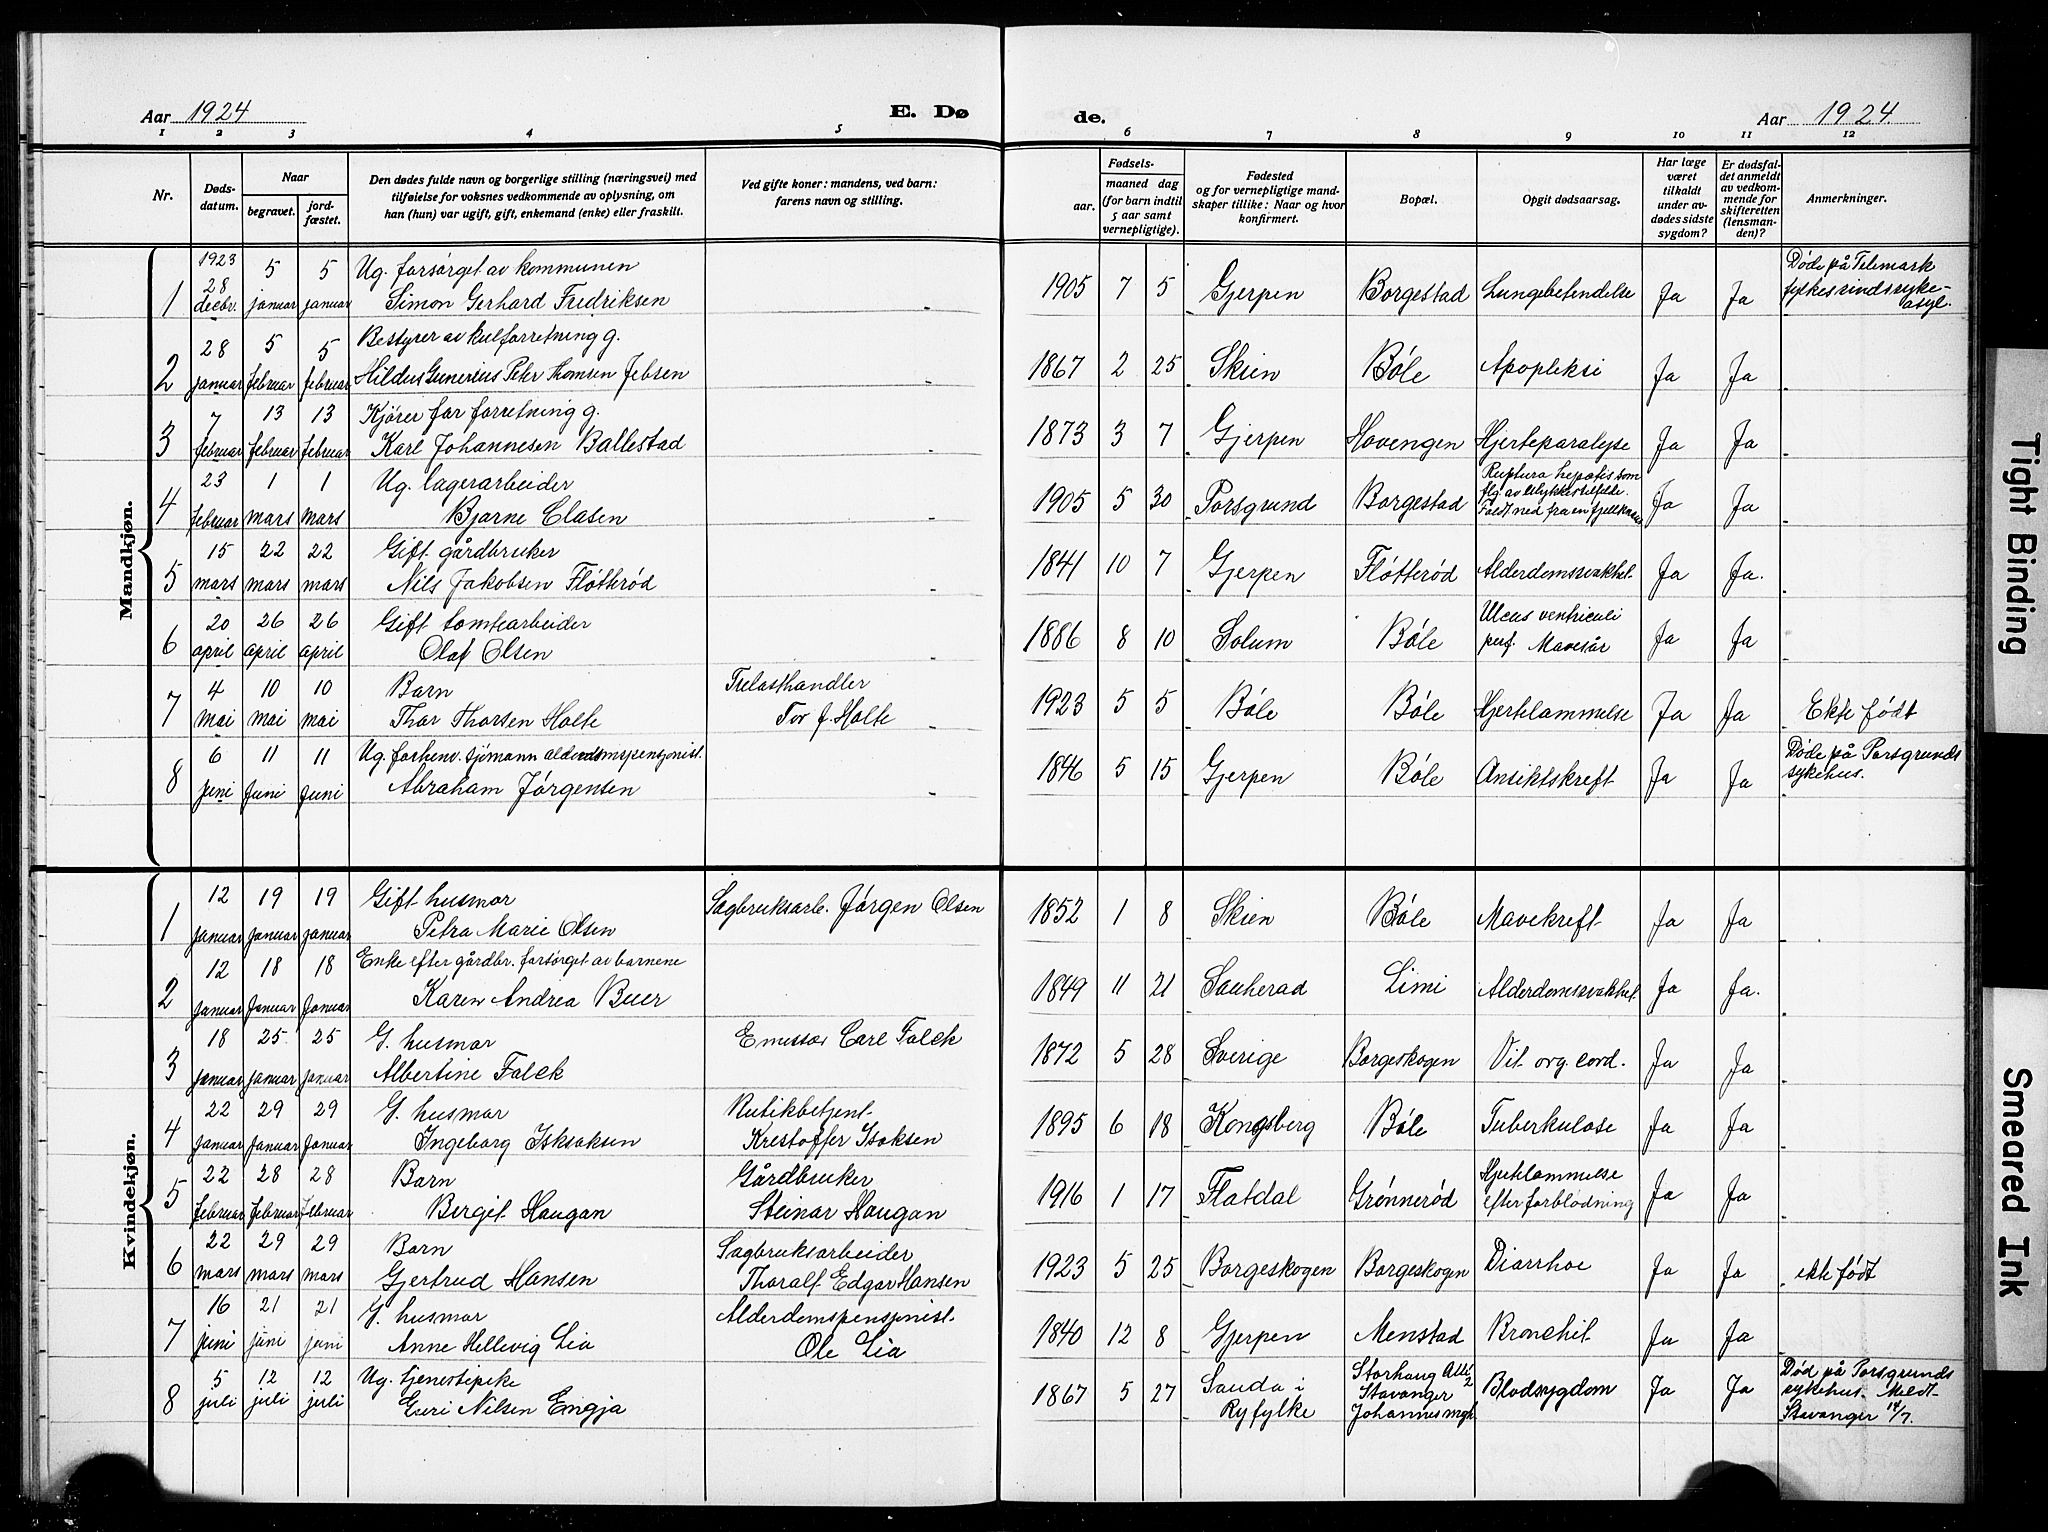 Aar 1924
E. Døde.
Aar 1924.
1 2 3 4 5 6 7 8 9 10 11 12
Nr.
Døds-
datum.
Naar
begravet.
jord-
fæstet.
Den dødes fulde navn og borgerlige stilling (næringsvei) med
tilføielse for voksnes vedkommende av oplysning, om
han (hun) var ugift, gift, enkemand (enke) eller fraskilt.
Ved gifte koner: mandens, ved barn:
farens navn og stilling.
Fødsels-
aar.
maaned dag
(for barn indtil
5 aar samt
vernepligtige).
Fødested
og for vernepligtige mand-
skaper tillike: Naar og hvor
konfirmert.
Bopæl.
Opgit dødsaarsag.
Har læge
været
tilkaldt
under av-
dødes sidste
sygdom?
Er dødsfal-
det anmeldt
av vedkom-
mende for
skifteretten
(lensman-
den)?
Anmerkninger.
Mandkjøn.
1923
1 28 decbr. 5 januar 5 januar Ug. forsørget av kommunen
Simon Gerhard Fredriksen 1905 7 5 Gjerpen Borgestad Lungebetendelse Ja Ja Døde på Telemark
fylkessindssyke-
asyl.
2 28 januar 5 februar 5 februar Bestyrer av kulforretning g.
Hildus Gunerius Petr Thomsen Jebsen 1867 2 25 Skien Bøle Apopleksi Ja Ja
3 7 februar 13 februar 13 februar Kjører for forretning g.
Karl Johannesen Ballestad 1873 3 7 Gjerpen Hovengen Hjerteparalyse Ja Ja
4 23 februar 1 mars 1 mars Ug. lagerarbeider
Bjarne Clasen 1905 5 30 Porsgrund Borgestad Ruptura hepatis som
flg. av ulykkestilfelde.
Faldt ned fra en fjellknaus Ja Ja
5 15 mars 22 mars 22 mars Gift gårdbruker
Nils Jakobsen Fløtterød 1841 10 7 Gjerpen Fløtterød Alderdomssvakhet Ja Ja.
6 20 april 26 april 26 april Gift tomtearbeider
Olaf Olsen 1886 8 10 Solum Bøle Ulcus ventriculi
perf. Mavesår Ja Ja
7 4 mai 10 mai 10 mai Barn Trelasthandler
Thor Thorsen Holte Tor J. Holte 1923 5 5 Bøle Bøle Hjertelammelse Ja Ja Ekte født
8 6 juni 11 juni 11 juni Ug. forhenv. sjømann alderdomspensjonist.
Abraham Jørgensen 1846 5 15 Gjerpen Bøle Ansiktskreft Ja Ja Døde på Porsgrunds
sykehus.
Kvindekjøn.
1 12 januar 19 januar 19 januar Gift husmor Sagbruksarb. Jørgen Olsen
Petra Marie Olsen 1852 1 8 Skien Bøle Mavekreft Ja Ja
2 12 januar 18 januar 18 januar Enke efter gårdbr. forsørget av barnene
Karen Andrea Buer 1849 11 21 Sauherad Limi Alderdomssvakhet Ja Ja.
3 18 januar 25 januar 25 januar G. husmor Emissær Carl Falck
Albertine Falck 1872 5 28 Sverige Borgeskogen Vit. org. cord. Ja Ja
4 22 januar 29 januar 29 januar G. husmor Butikbetjent
Ingeborg Isksaksen Kristoffer Isaksen 1895 6 18 Kongsberg Bøle Tuberkulose Ja Ja
5 22 februar 28 februar 28 februar Barn Gårdbruker
Bergit Haugan Steinar Haugan 1916 1 17 Flatdal Grønnerød Hjertelammelse
efter forblødning Ja Ja
6 22 mars 29 mars 29 mars Barn Sagbruksarbeider
Gjertrud Hansen Thoralf Edgar Hansen 1923 5 25 Borgeskogen Borgeskogen Diarrhoe Ja Ja ekte født
7 16 juni 21 juni 21 juni G. husmor Alderdomspensjonist
Anne Hellevig Lia Ole Lia 1840 12 8 Gjerpen Menstad Bronchit Ja Ja
8 5 juli 12 juli 12 juli Ug. tjenestepike
Guri Nilsen Engja 1867 5 27 Sauda i
Ryfylke Storhaug Allé
2
Stavanger
Johannesmgh. Blodsygdom Ja Ja Død på Porsgrunds
sykehus. Meldt
Stavanger 14/7.
Tight Binding
Smeared Ink